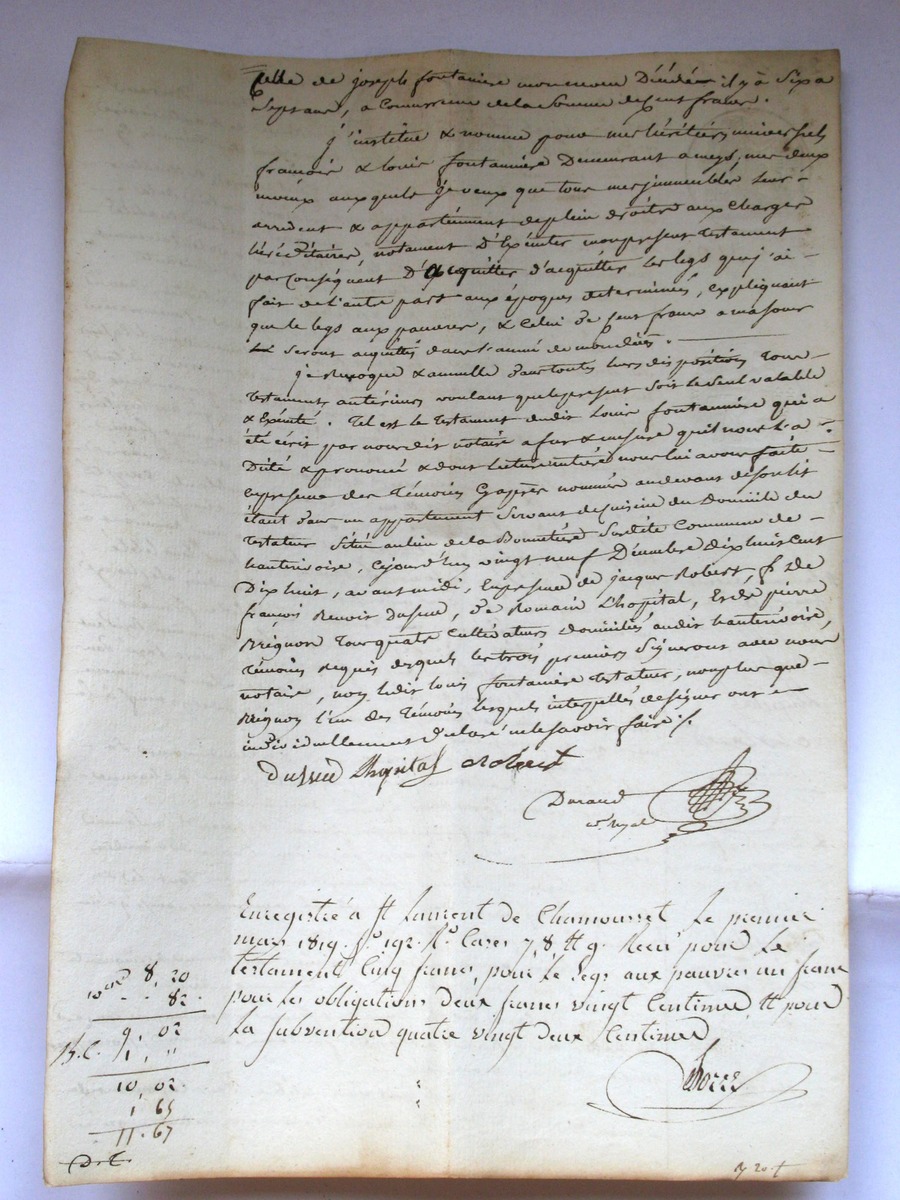 celle de joseph fontanière mon neveu Décédé il y à Six a
Sept ans, a Concurrence de la Somme de Cent francs.
j'institue & nomme pour mes héritiers universels
françois & louis fontannière Demeurant a meys, mes deux
neveux auxquels je veux que tous mes jmmeubles leur
arrivent & appartiennent de plein droite aux Charges
héréditaires, notament D'Exécuter mon present Testament
par Conséquent D'acquitter d'acquitter les legs que j'ai
fait de l'autre part aux époques determinées, Expliquant
que le legs aux pauvres, & Celui de Cent francs a ma sœur
seront acquittés dans l'année de mon décès.
je Revoque & annulle dans toutes leurs dispositions Tous
Testaments antérieurs voulant que le present soit le Seul valable
& Exécuté. Tel est le Testament dudit Louis fontannière qui a
été écrit par nous dit notaire a fur & mesure qu'il nous l'a
Dicté & prononcé & dont lecture entière nous lui avons faite
En presence des Témoins Ci après nommés
étant dans un appartement Servant de Cuisine du Domicile du
Testateur Situé au lieu de la Bonnetière Susdite Commune de
hauterivoire, Cejourd'hui vingt neuf Décembre Dix huit Cent
Dix huit, avant midi, En presence de jacques Robert, fils de
françois Benoit Dussud, de Romain Lhopital, Et de pierre
Brignon Tous quatre Cultivateurs Domiciliés audit hauterivoire,
Témoins Requis desquels les trois premiers Signeront avec nous
notaire, non ledit louis fontanière Testateur, non plus que
Brignon l'un des Témoins lesquels interpellés de signer ont
individuellement Déclaré ne le savoir faire ./.
Dussud Lhopital Robert
Durand
Nre Royal
Enregistré à St Laurent de Chamousset le premier
mars 1819. fo. 192. Ro. Cases 7, 8 et 9. Recu pour le
testament Cinq francs, pour le Legs aux pauvres un franc
pour les obligations deux francs vingt Centimes, et pour
la subvention quatre vingt deux Centimes
8, 20
- - 82.
9, 02
1, "
10, 02.
1 65
11. 67